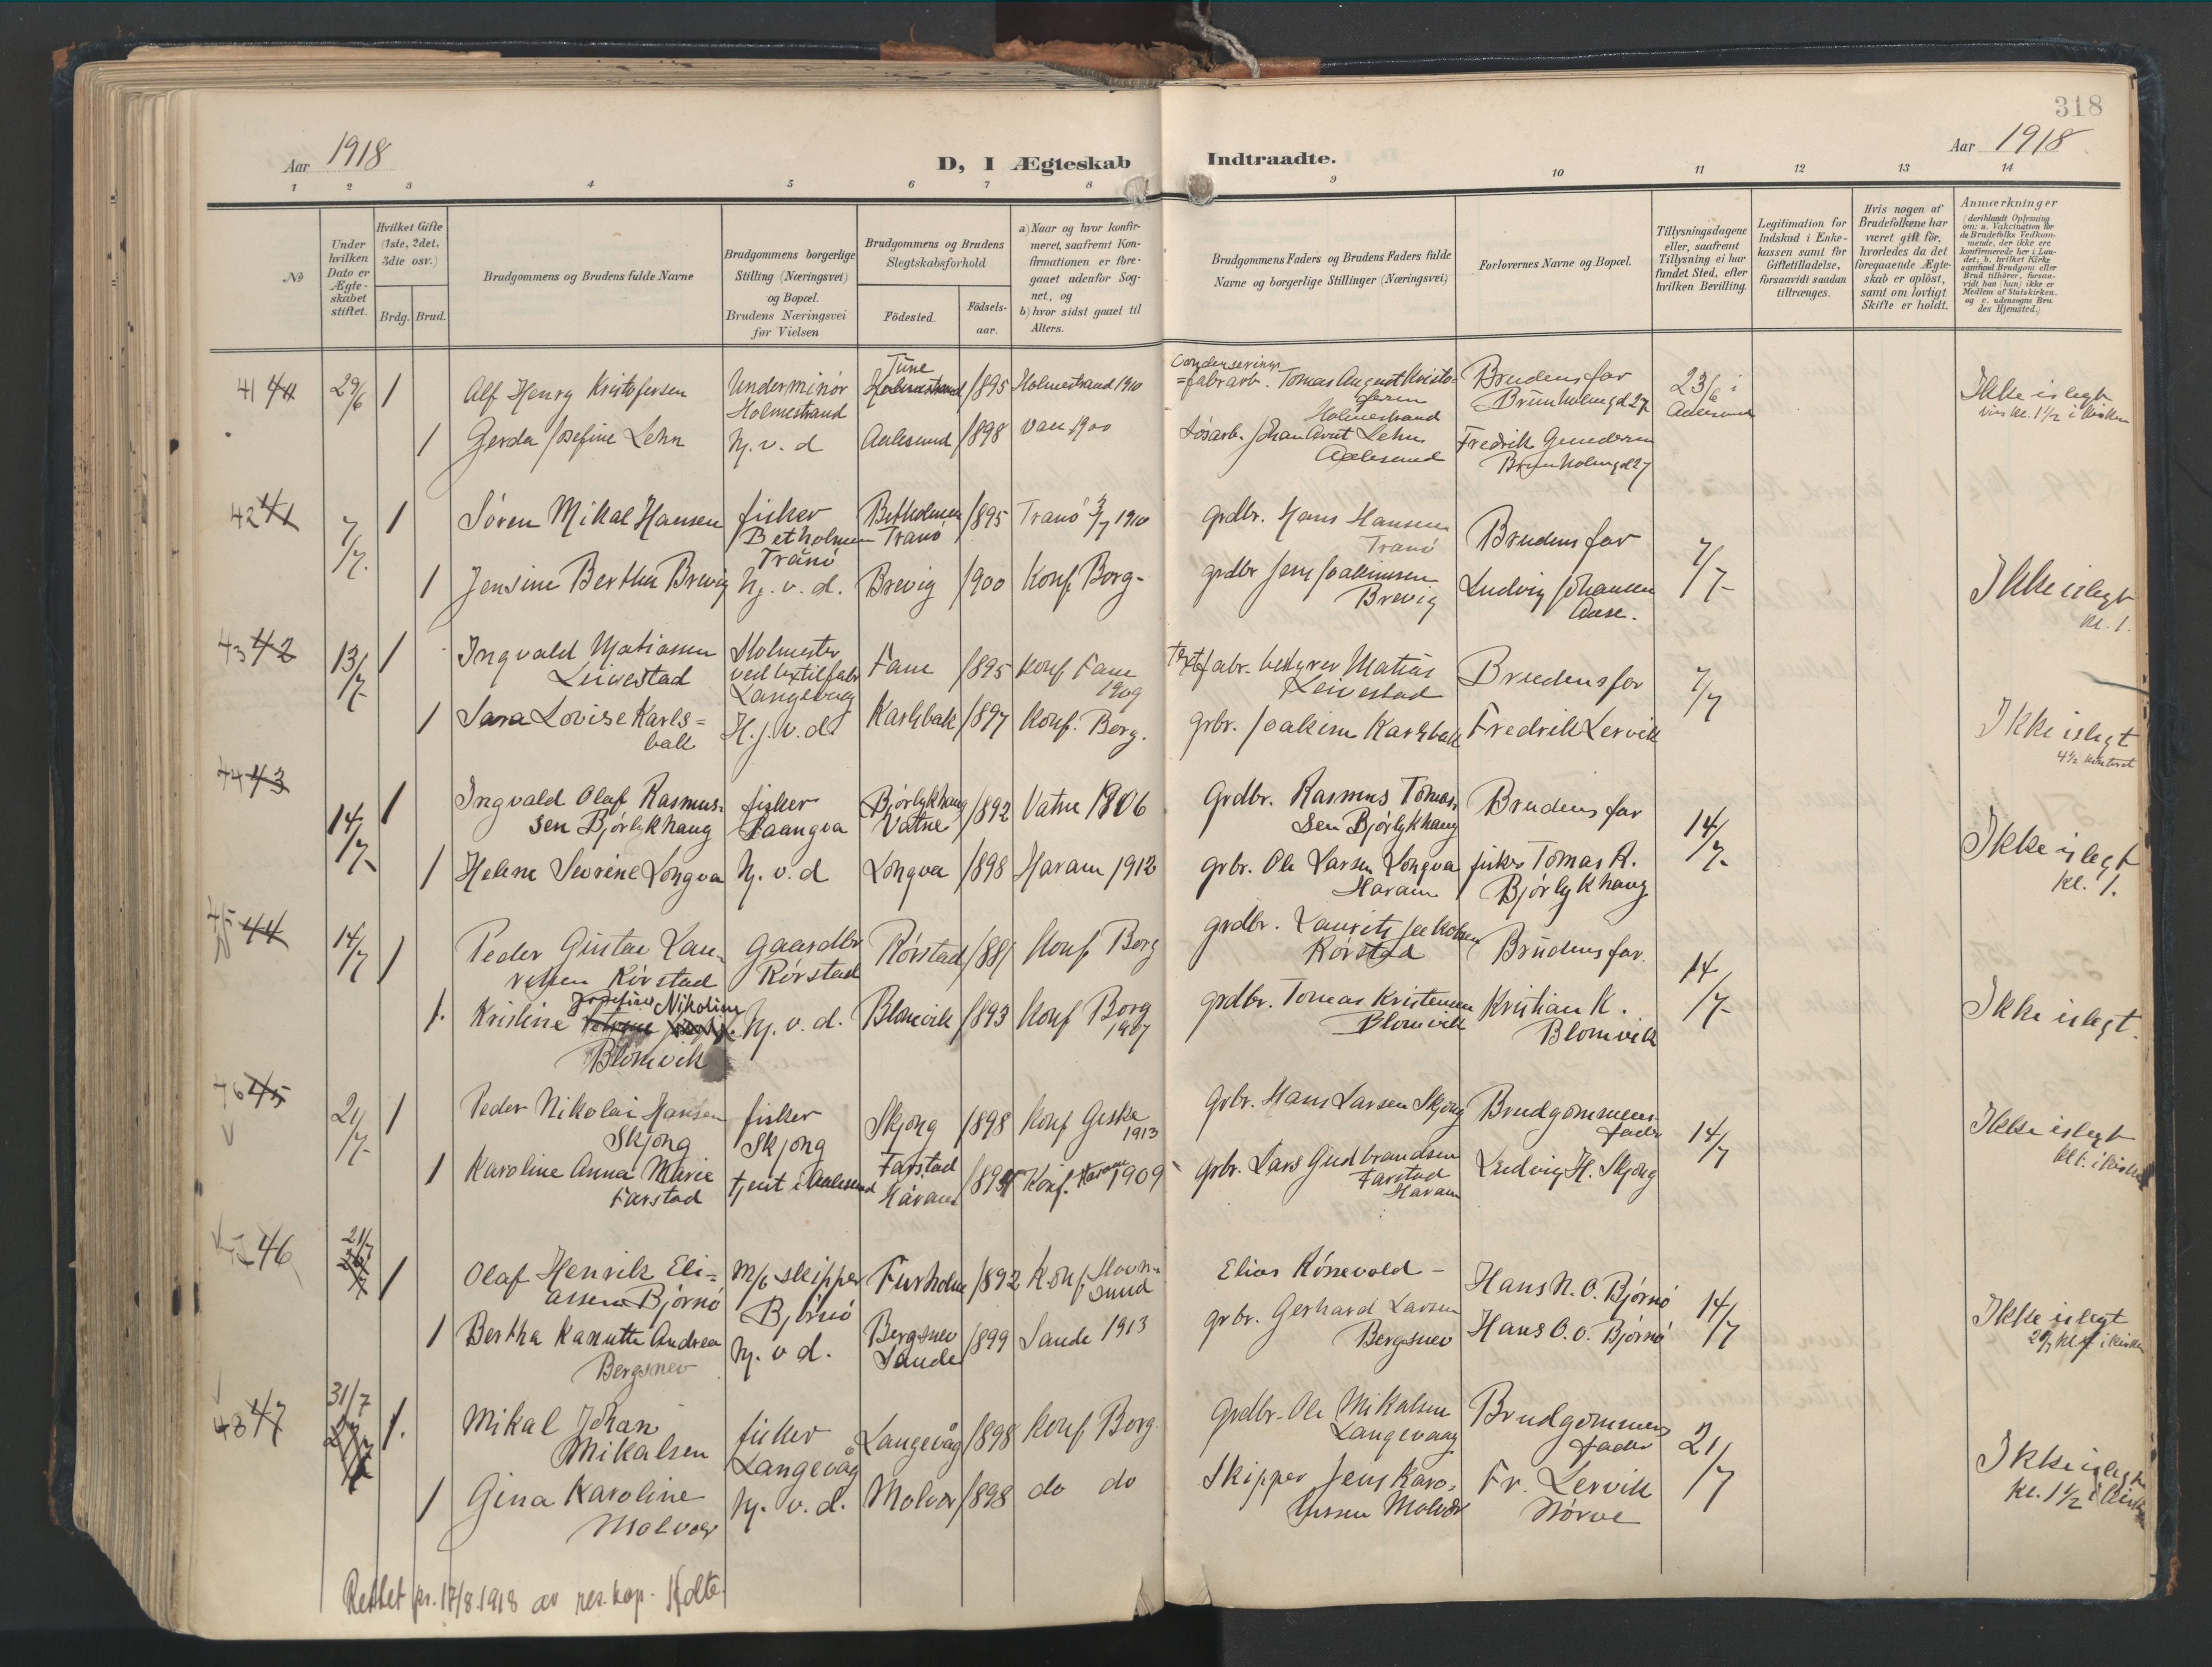 318
Aar 1918
D, I Ægteskab Indtraadte.
Aar 1918
1 2 3 4 5 6 7 8 9 10 11 12 13 14
No
Under hvilken Dato er Ægteskabet stiftet.
Hvilket Gifte (1ste, 2det, 3die osv.)
Brdg. Brud.
Brudgommens og Brudens fulde Navne
Brudgommens borgerlige Stilling (Næringsvei) og Bopæl. Brudens Næringsvei før Vielsen
Brudgommens og Brudens Slegtskabsforhold
Födested.
Födsels-aar.
a) Naar og hvor konfirmeret, saafremt Konfirmationen er foregaaet udenfor Sognet, og
b) hvor sidst gaaet til Alters.
Brudgommens Faders og Brudens Faders fulde Navne og borgerlige Stillinger (Næringsvei)
Forlovernes Navne og Bopæl.
Tillysningsdagene eller, saafremt Tillysning ei har fundet Sted, efter hvilken Bevilling.
Legitimation for Indskud i Enkekassen samt for Giftetilladelse, forsaavidt saadan tiltrænges.
Hvis nogen af Brudefolkene har været gift för, hvorledes da det foregaaende Ægteskab er oplöst, samt om lovligt Skifte er holdt.
Anmærkninger
(deriblandt Oplysning om: a. Vakcination for de Brudefolks Vedkommende, der ikke ere konfirmerede her i Landet; b. hvilket Kirkesamfund Brudgom eller Brud tilhörer, forsaavidt han (hun) ikke er Medlem af Statskirken, og c. udensogns Brudes Hjemsted.)
41 29/6 1 Alf Henry Kristofersen Underminör Holmestrand
Tune 1895 Holmestrand 1910
Condenserings=fabrarb. Tomas August Kristofersen Holmestrand
Brudens far Brunholmgd 27
23/6 i Aalesund
Ikke i slegt
vies kl. 1 1/2 i kirken
1 Gerda Josefine Lehn hj. v. d Aalesund 1898
Johan Lehn Aalesund
Fredrik Brunholmgd 27
42 41 7/7. 1 Søren Mikal Hansen fisker Betholmen Tranö
Betholmen Tranö 1895 Tranö 3/7 1910
grdbr. Hans Hansen Tranö
Brudens far
7/7
Ikke i slegt
kl. 1.
1 Jensine Berthe Brevig hj. v. d. Brevig 1900 Konf. Borg
grdbr Jens Joakimsen Brevig
Ludvig Johansen Aase.
43 42 13/7 1 Ingvald Matiasen Leivestad
Stolmester ved textilfabr Langevaag
Fane 1895 Konf Fane 1909
Textfabr. bestyrer Matias Leivestad
Brudens far
7/7
Ikke i slegt
4 1/2 kontoret
1 Sara Lovise Karlsbak H.j.v.d. Karlsbak 1897 Konf. Borg.
grbr. Joakim Karlsbak
Fredrik Lervik
44 43 14/7 1 Ingvald Olaf Rasmussen Bjørlykhaug
fisker Laangva
Bjørlykhaug Vatne 1892 Vatne 1906
Grdbr. Rasmus Tomassen Bjørlykhaug
Brudens far
14/7
Ikke i slegt
kl. 1.
1 Helene Sevrine Longva hj. v. d Longva 1898 Haram 1912
grbr. Ole Larsen Longva Haram
fisker Tomas R. Bjørlykhaug
45 44 14/7 1 Peder Gustav Lauritsen Rörstad
gaardbr Rörstad
Rörstad 1881 Konf Borg
grdbr. Laurits Jakobsen Rörstad
Brudens far.
14/7
Ikke i slegt.
1. Kristine Josefine Nikoline Blomvik
hj. v. d. Blomvik 1893 Konf Borg 1907
grdbr. Tomas Kristensen Blomvik
Kristian K. Blomvik
46 45 21/7 1 Peder Nikolai Hansen Skjong
fisker Skjong
Skjong 1898 Konf Giske 1913
Grbr. Hans Larsen Skjong
Brudgommens fader
14/7
Ikke i slegt
kl 1. i kirken
1 Karoline Anna Marie Farstad
tjent i Aalesund
Farstad Haram 1894 Konf. Haram 1909
grbr. Lars Gudbrandsen Farstad Haram
Ludvig H. Skjong
47 46 21/7 1 Olaf Henrik Eliassen Bjørnö
m/k skipper Bjørnö
Furholm 1892 Konf Stavnsund
Elias Rönevold
Hans N. O. Bjørnö
14/7
Ikke i slegt
1 Bertha Kanutte Andrea Bergsnev
hj. v d. Bergsnev Sande 1899 Sande 1913
grbr. Gerhard Larsen Bergsnev
Hans O. O. Bjørnö
48 47 31/7 1. Mikal Johan Mikalsen
fisker Langevåg
Langevåg 1898 Konf Borg.
Grdbr. Ole Mikalsen Langevaag
Brudgommens fader
21/7
Ikke i slegt
kl. 1 1/2 i kirken
1 Gina Karoline Molvær
hj. v. d. Molvær 1898 do do
Skipper Jens Karolussen Molvær
Fr. Lervik Nörve
Rettet pr. 17/8 1918 av res. kap. Holte.